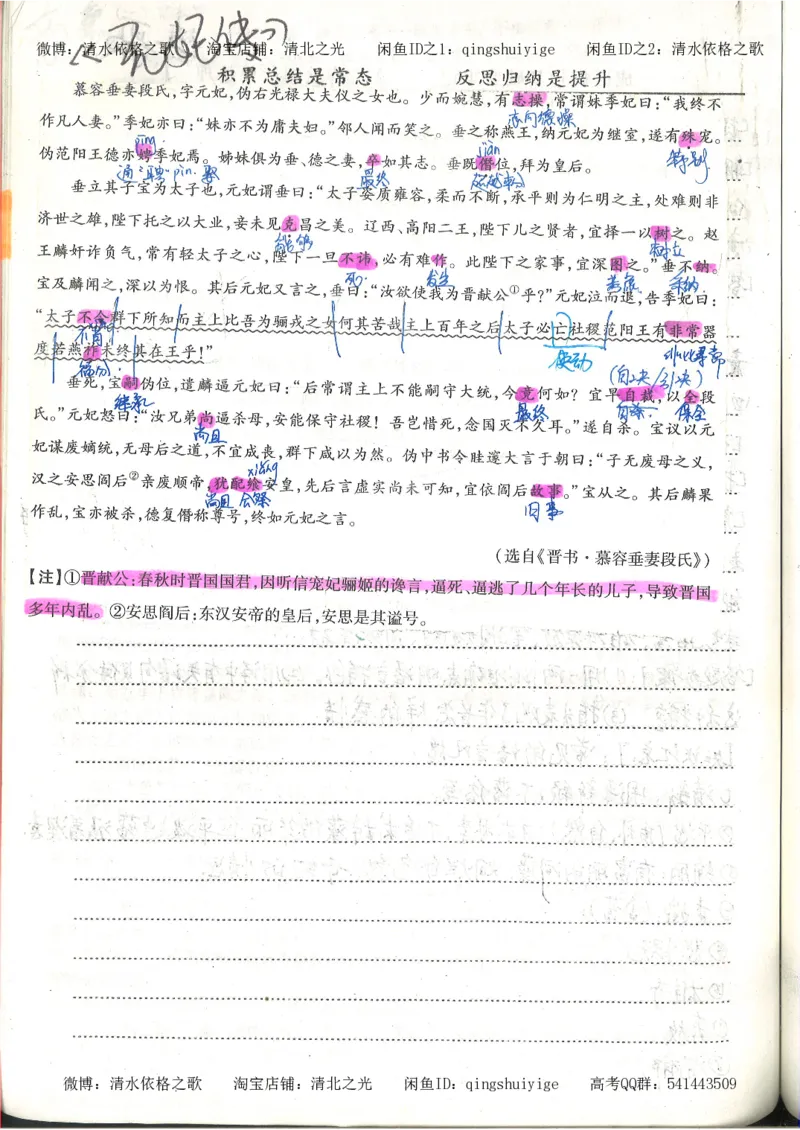 微博：清水依格之歌 淘宝店铺：清北之光 闲鱼ID之1：qingshuiyige 闲鱼ID之2：清水依格之歌
积累总结是常态 反思归纳是提升
慕容垂妻段氏，字元妃，伪右光禄大夫仪之女也。少而婉慧，有志操，常谓妹季妃曰：“我终不
志向德操
作凡人妻。”季妃亦曰：“妹亦不为庸夫妇。”邻人闻而笑之。垂之称燕王，纳元妃为继室，遂有殊宠。
pìn jiàn 特别
伪范阳王德亦娉季妃焉。姊妹俱为垂、德之妻，卒如其志。垂既僭位，拜为皇后。
通“聘”pìn 最终
垂立其子宝为太子也，元妃谓垂曰：“太子姿质雍容，柔而不断，承平则为仁明之主，处难则非
济世之雄，陛下托之以大业，妾未见克昌之美。辽西、高阳二王，陛下儿之贤者，宜择一以树之。赵
能够 树立
王麟奸诈负气，常有轻太子之心，陛下一旦不讳，必有难作。此陛下之家事，宜深图之。”垂不纳。
死 发生 考虑 采纳
宝及麟闻之，深以为恨。其后元妃又言之，垂曰：“汝欲使我为晋献公①乎？”元妃泣而退，告季妃曰：
“太子不令群下所知而主上比吾为骊戎之女何其苦哉主上百年之后太子必亡社稷范阳王有非常器
使动 非比寻常
度若燕祚未终其在王乎！”
福分 (自决/引决)
垂死，宝嗣伪位，遣麟逼元妃曰：“后常谓主上不能嗣守大统，今竟何如？宜早自裁，以全段
继承 最终 自杀 保全
氏。”元妃怒曰：“汝兄弟尚逼杀母，安能保守社稷！吾岂惜死，念国灭不久耳。”遂自杀。宝议以元
尚且
妃谋废嫡统，无母后之道，不宜成丧，群下咸以为然。伪中书令眭邃大言于朝曰：“子无废母之义，
xiǎng
汉之安思阎后②亲废顺帝，犹配飨安皇，先后言虚实尚未可知，宜依阎后故事。”宝从之。其后麟果
尚且 合祭 旧事
作乱，宝亦被杀，德复僭称尊号，终如元妃之言。
（选自《晋书·慕容垂妻段氏》）
【注】①晋献公：春秋时晋国国君，因听信宠妃骊姬的谗言，逼死、逼逃了几个年长的儿子，导致晋国
多年内乱。②安思阎后：东汉安帝的皇后，安思是其谥号。
微博：清水依格之歌 淘宝店铺：清北之光 闲鱼ID：qingshuiyige 高考QQ群：541443509